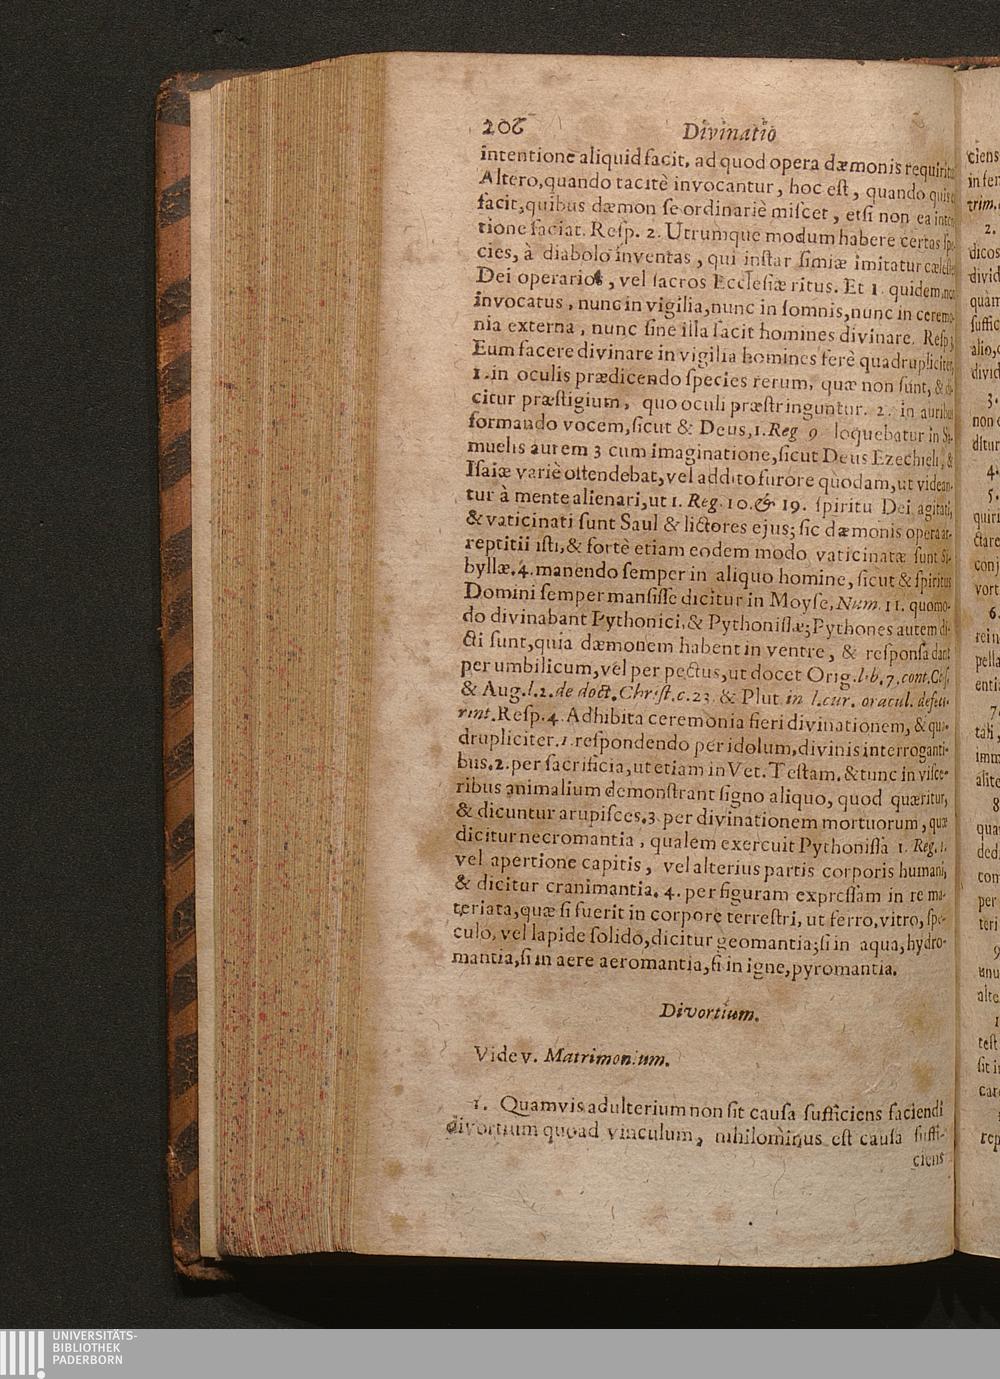 206 Divinatio
intentione aliquid facit, ad quod opera dæmonis requiritu
Altero, quando tacitè invocantur, hoc eſt, quando quis
facit, quibus dæmon ſe ordinariè miſcet, etſi non ea inten
tione faciat. Reſp. 2. Utrumque modum habere certas ſpe-
cies, à diabolo inventas, qui inſtar ſimiæ imitatur cæleſtes
Dei operarios, vel ſacros Eccleſiæ ritus. Et 1. quidem, non
invocatus, nunc in vigilia, nunc in ſomnis, nunc in ceremo-
nia externa, nunc ſine illa facit homines divinare. Reſp. 3
Eum facere divinare in vigilia homines ferè quadrupliciter,
1. in oculis prædicendo ſpecies rerum, quæ non ſunt, & di-
citur præſtigium, quo oculi præſtringuntur. 2. in auribus
formando vocem, ſicut & Deus, 1. Reg 9 loquebatur in Sa-
muelis aurem 3 cum imaginatione, ſicut Deus Ezechieli, &
Iſaiæ variè oſtendebat, vel addito furore quodam, ut videan-
tur à mente alienari, ut 1. Reg. 10. & 19. ſpiritu Dei agitati,
& vaticinati ſunt Saul & lictores ejus; ſic dæmonis opera ar-
reptitii iſti, & fortè etiam eodem modo vaticinatæ ſunt Si-
byllæ. 4. manendo ſemper in aliquo homine, ſicut & ſpiritus
Domini ſemper manſiſſe dicitur in Moyſe, Num. 11. quomo-
do divinabant Pythonici, & Pythoniſſæ; Pythones autem di-
cti ſunt, quia dæmonem habent in ventre, & reſponſa dant
per umbilicum, vel per pectus, ut docet Orig. lib. 7. cont. Celſ.
& Aug. l. 2. de doct. Chriſt. c. 23 & Plut in l. cur. oracul. defue-
rint. Reſp. 4. Adhibita ceremonia fieri divinationem, & qua-
drupliciter. 1. reſpondendo per idolum, divinis interroganti-
bus. 2. per ſacrificia, ut etiam in Vet. Teſtam. & tunc in viſce-
ribus animalium demonſtrant ſigno aliquo, quod quæritur,
& dicuntur arupiſces. 3. per divinationem mortuorum, quæ
dicitur necromantia, qualem exercuit Pythoniſſa 1. Reg. 1.
vel apertione capitis, vel alterius partis corporis humani,
& dicitur cranimantia. 4. per figuram expreſſam in re ma-
teriata, quæ ſi fuerit in corpore terreſtri, ut ferro, vitro, ſpe-
culo, vel lapide ſolido, dicitur geomantia; ſi in aqua, hydro-
mantia, ſi in aere aeromantia, ſi in igne, pyromantia.
Divortium.
Vide v. Matrimonium.
1. Quamvis adulterium non ſit cauſa ſufficiens faciendi
divortium quoad vinculum, nihilominus eſt cauſa ſuffi-
ciens
UNIVERSITÄTS-
BIBLIOTHEK
PADERBORN